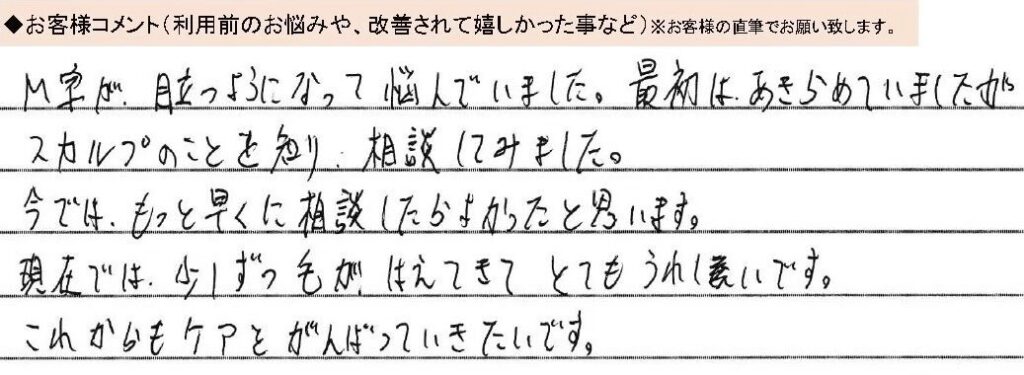 ◆お客様コメント（利用前のお悩みや、改善されて嬉しかった事など）※お客様の直筆でお願い致します。
M字が、目立つようになって悩んでいました。最初は、あきらめていましたが
スカルプのことを知り、相談してみました。
今では、もっと早くに相談したらよかったと思います。
現在では、少しずつ毛が、はえてきてとてもうれしいです。
これからもケアをがんばっていきたいです。